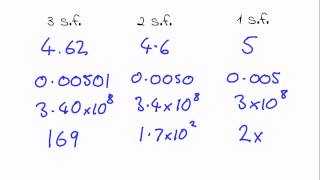 3 s.f. 2 s.f. 1 s.f.
4.62 4.6 5
0.00501 0.0050 0.005
3.40×10⁸ 3.4×10⁸ 3×10⁸
169 1.7×10² 2×